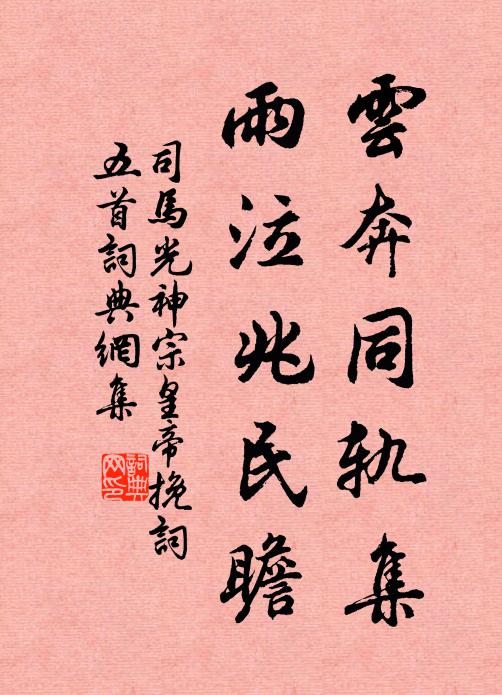 雲奔同軌集
雨泣兆民瞻
司馬光神宗皇帝挽詞
五首詞典網集
詞典
网印